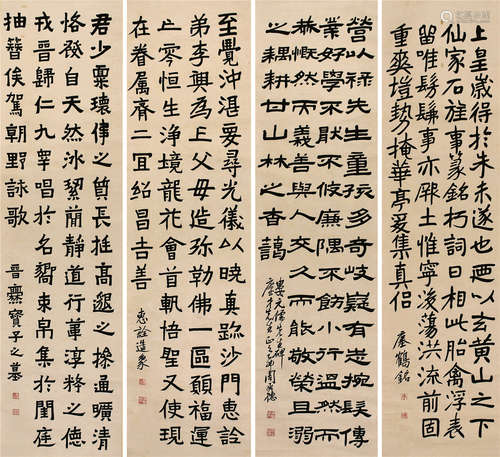 上皇歲得於朱未遂也廼以玄黃山之下
仙家石旌事篆銘朽詞曰相此胎禽浮表
留唯髣髴事亦厎土惟寧後蕩洪流前固
重爽塏勢掩華亭爰集真侶
瘞鶴銘
營以祿先生童孩多奇岐嶷有志捥髮傳
業好學不猒不攸廉隅不飭小行溫然
恭慨然而義善與人交久而能敬榮且溺
之耦耕甘山林之杳藹
婁元儒先生碑
先生正之
至覺沖湛妥尋光儀以曉真跡沙門惠詮
弟李興為亡父母造弥勒佛一區願福運
亡零恒生淨境龍花會首軏悟聖又使現
在眷屬齊二宜紹昌吉善
惠詮造象
君少稟瓌偉之質長挺高邈之操通曠清
恪發自天然冰絜蕳靜道行葦淳粹之德
戎晉歸仁九皋唱於名嚮束帛集於閨庭
抽簪俟駕朝野詠歌
晉爨寶子之墓